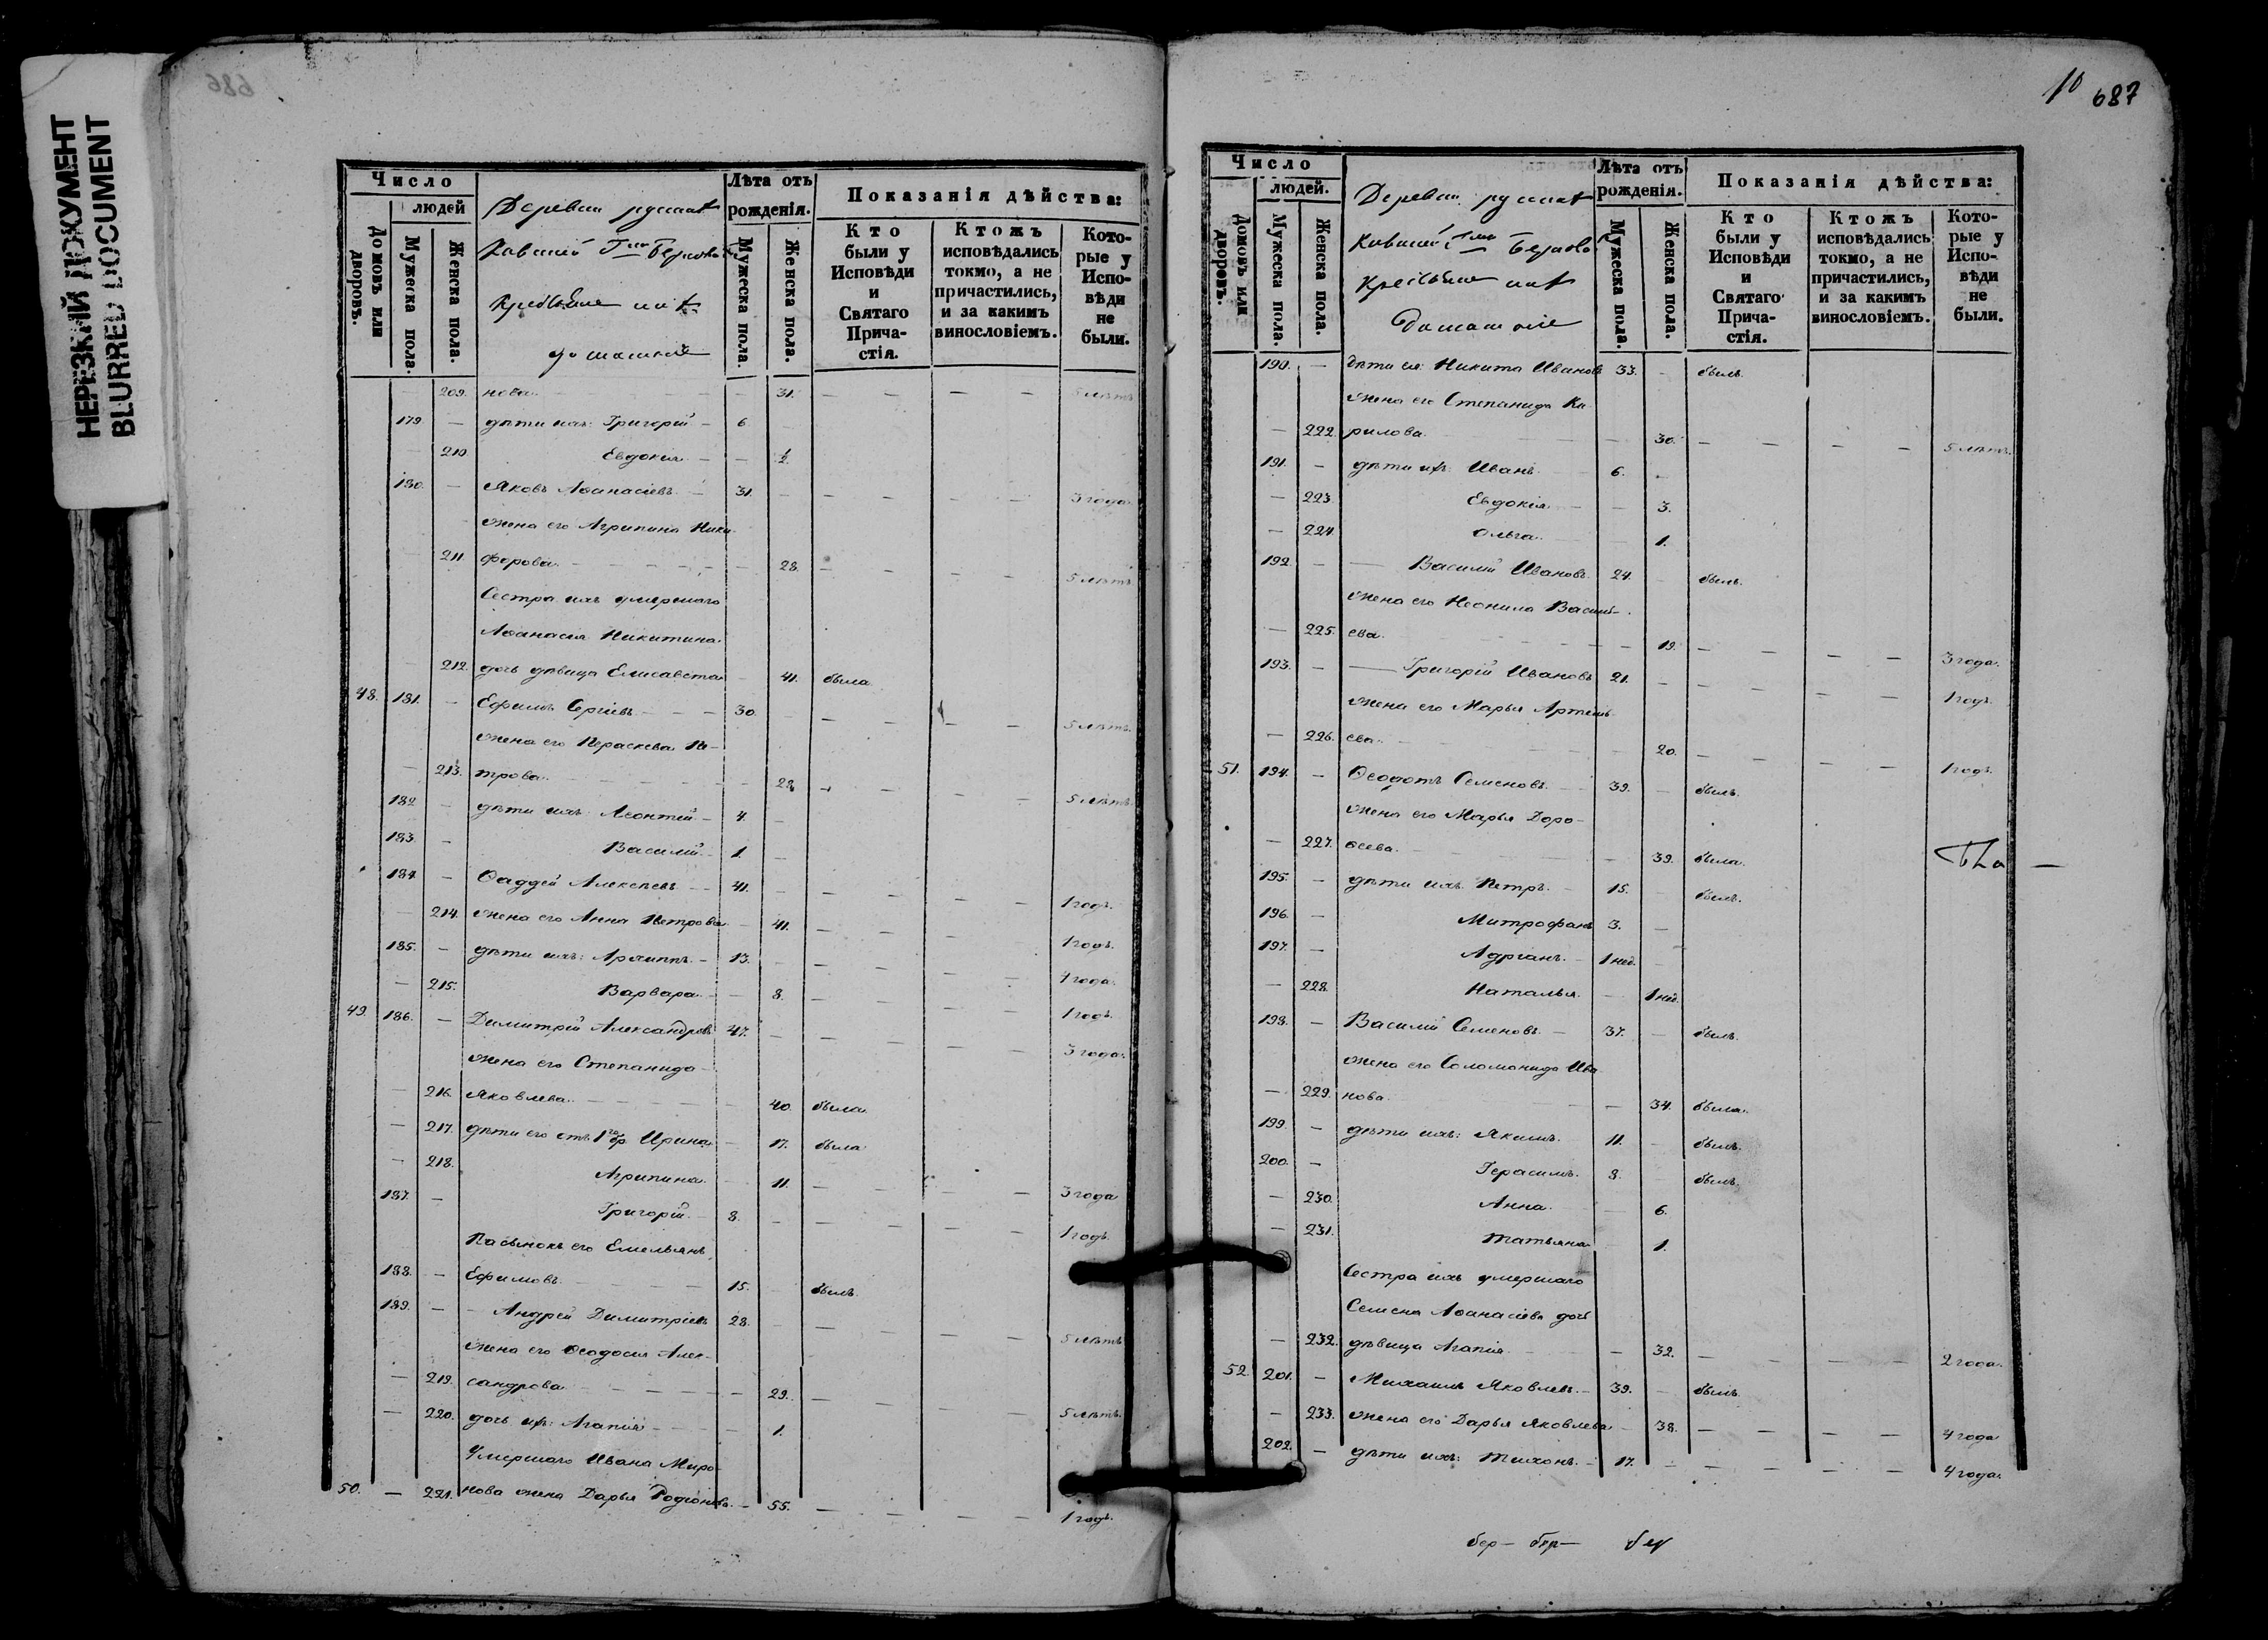 НЕРЕЗКИЙ ДОКУМЕНТ
BLURRED DOCUMENT
686
Число
людей
Домовъ или дворовъ.
Мужеска пола.
Женска пола.
Лѣта отъ рожденія.
Мужеска пола.
Женска пола.
Показанія дѣйства:
Кто были у Исповѣди и Святаго Прича-стія.
Ктожъ исповѣдались токмо, а не причастились, и за какимъ винословіемъ.
Кото-рые у Испо-вѣди не были.
209. нова 31. — — — — 5 лѣтъ
179. — дѣти ихъ: Григорій — 6
— 210 Евдокія — — ½
180. — Яковъ Аѳанасіевъ — 31. — — — — — 3 года
жена его Агрипина Ники-
211. форова — 28. — — — — 5 лѣтъ
Сестра ихъ умершаго
Аѳанасія Никитина
212. дочь дѣвица Елисавета 41. была
48. 181. — Ефимъ Сергіевъ — 30. — — — — 5 лѣтъ.
жена его Параскева Пе-
— 213. трова 28 — — — — 5 лѣтъ
182 — дѣти ихъ: Леонтій — 4. —
183 — Василій — 1. —
184 — Ѳаддей Алексѣевъ — 41. — — — — — 1 годъ.
— 214. жена его Анна Петрова — 41. — — — — 1 годъ.
185. — дѣти ихъ: Архиппъ — 13. — — — — — 4 года
— 215. Варвара — 8. — — — — 1 годъ.
49. 186. — Димитрій Александровъ 47. — — — — — 3 года.
жена его Степанида
— 216. Яковлева 40. была
— 217. дѣти его отъ 1го бр. Ирина — 17. была
— 218. Агрипина 11. — — — — 3 года
187. — Григорій — 8. — — — — — 1 годъ
Пасынокъ его Емельянъ
188. — Ефимовъ 15. былъ
189. — Андрей Димитріевъ 28. — — — — — 5 лѣтъ
жена его Ѳеодосія Алек-
— 219. сандрова — 29. — — — — 5 лѣтъ.
— 220. дочь ихъ: Агапія — 1.
Умершаго Ивана Миро-
50. — 221. нова жена Дарья Родіонова — 55. — — — — 1 годъ.
10 687
Число
людей.
Домовъ или дворовъ.
Мужеска пола.
Женска пола.
Лѣта отъ рожденія.
Мужеска пола.
Женска пола.
Показанія дѣйства:
Кто были у Исповѣди и Святаго Прича-стія.
Ктожъ исповѣдались токмо, а не причастились, и за какимъ винословіемъ.
Кото-рые у Испо-вѣди не были.
190. — дѣти ея: Никита Ивановъ 33. — былъ.
жена его Степанида Ки-
— 222. рилова 30. — — — — 5 лѣтъ.
191. — дѣти ихъ: Иванъ 6. —
— 223. Евдокія — 3.
— 224. Ольга — 1.
192. — — Василій Ивановъ 24. — былъ.
жена его Неонила Василь-
— 225. ева. — 19. — — — — 3 года.
193. — — Григорій Ивановъ 21. — — — — — 1 годъ.
жена его Марья Артемь-
— 226. ева — 20. — — — — 1 годъ.
51. 194. — Ѳеодотъ Семеновъ 39. — былъ.
жена его Марья Доро-
— 227. ѳеева — 39. была.
195. — дѣти ихъ Петръ. — 15. — былъ.
196. — Митрофанъ 3. —
197. — Адріанъ. — 1 нед. —
— 228. Наталья. — 1 нед.
198. — Василій Семеновъ. — 37. — былъ.
жена его Соломонида Ива-
— 229. нова — 34. была.
199. — дѣти ихъ: Якимъ. 11. — былъ.
200. — Герасимъ. 8. былъ.
— 230. Анна. — 6.
— 231. Татьяна — 1.
Сестра ихъ умершаго
Семена Аѳанасіева дочь
— 232. дѣвица Агапія — 32. — — — — 2 года.
52. 201. — Михаилъ Яковлевъ. — 39. — былъ
— 233. жена его Дарья Яковлева — 38. — — — — 4 года
202. — дѣти ихъ: Тихонъ. — 17. — — — — — 4 года.